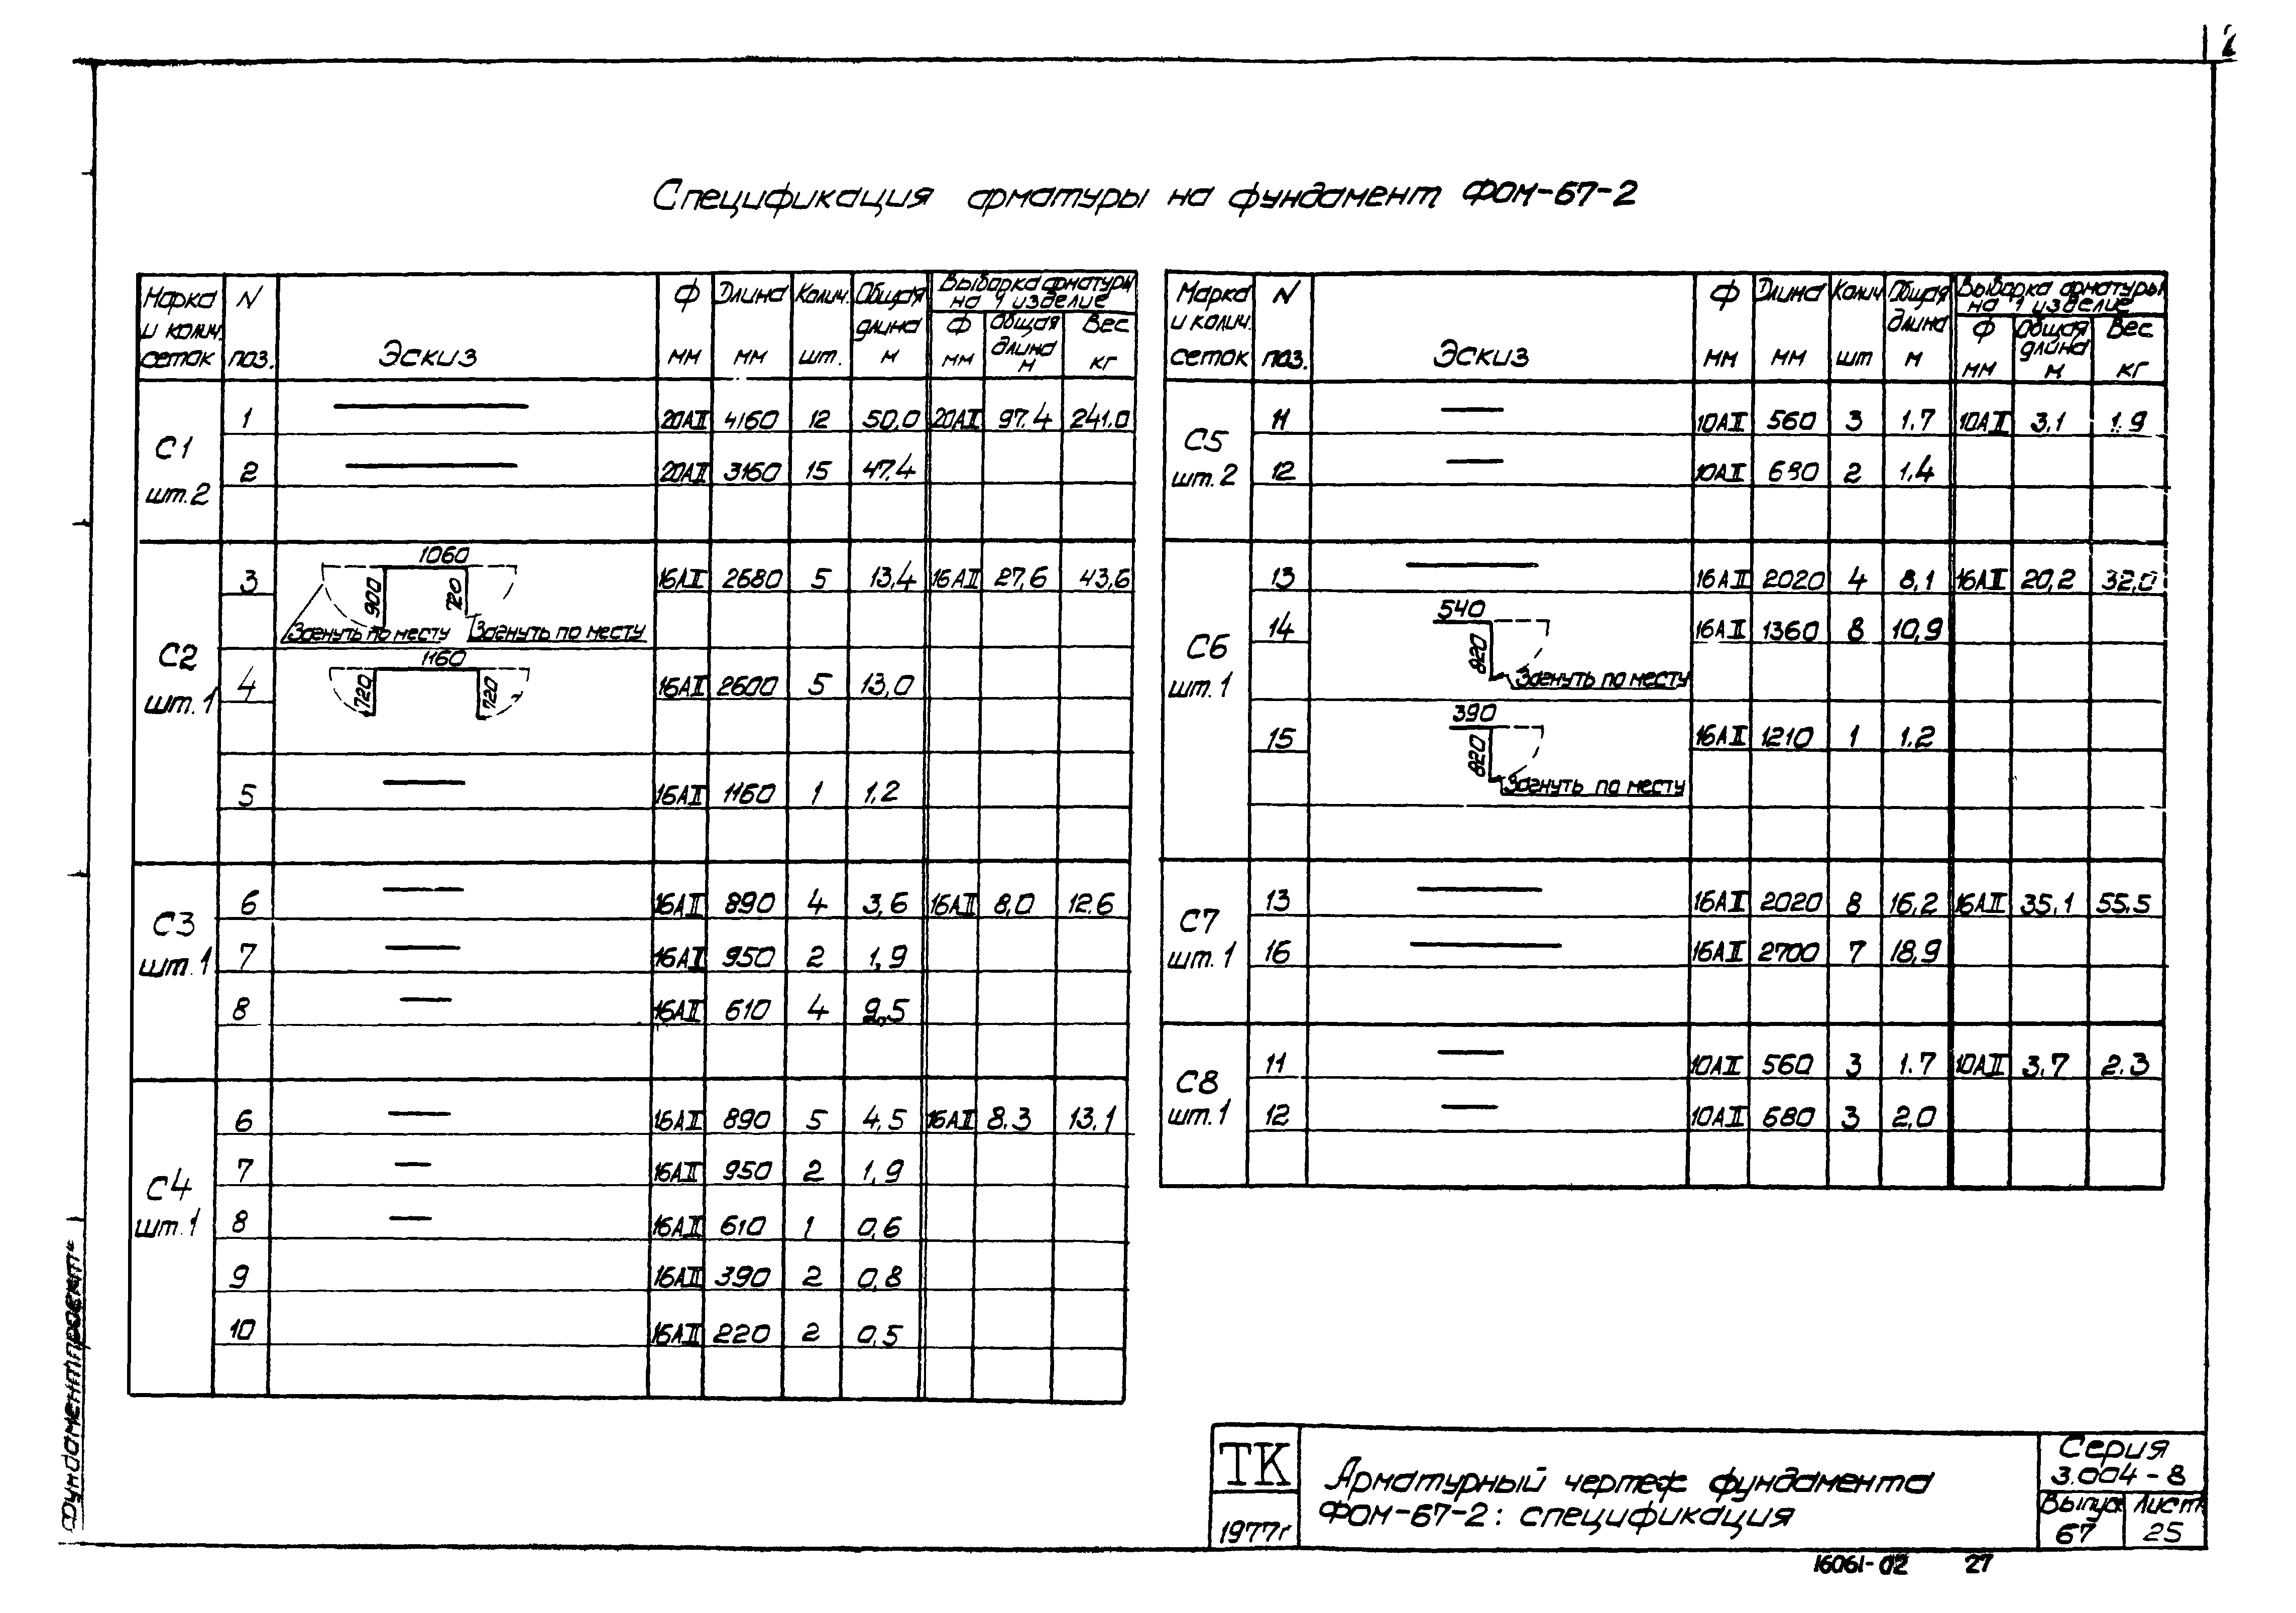 Спецификация арматуры на фундамент ФОМ-67-2
Марка и колич. сеток N поз. Эскиз Ф мм Длина мм Колич. шт. Общая длина м Выборка арматуры на 1 изделие Ф мм Общая длина м Вес кг
С1 шт.2
1 20АII 4160 12 50,0 20АII 97.4 241.0
2 20АII 3160 15 47.4
С2 шт.1
3 1060 900 720 Загнуть по месту Загнуть по месту 16АII 2680 5 13,4 16АII 27,6 43,6
4 1160 720 720 16АII 2600 5 13,0
5 16АII 1160 1 1,2
С3 шт.1
6 16АII 890 4 3,6 16АII 8,0 12.6
7 16АII 950 2 1,9
8 16АII 610 4 2,5
С4 шт.1
6 16АII 890 5 4,5 16АII 8.3 13.1
7 16АII 950 2 1,9
8 16АII 610 1 0,6
9 16АII 390 2 0,8
10 16АII 220 2 0,5
Марка и колич. сеток N поз. Эскиз Ф мм Длина мм Колич шт Общая длина м Выборка арматуры на 1 изделие Ф мм Общая длина м Вес кг
С5 шт.2
11 10АII 560 3 1.7 10АII 3,1 1.9
12 10АII 680 2 1.4
С6 шт.1
13 16АII 2020 4 8,1 16АII 20,2 32,0
14 540 820 Загнуть по месту 16АII 1360 8 10,9
15 390 820 Загнуть по месту 16АII 1210 1 1.2
С7 шт.1
13 16АII 2020 8 16,2 16АII 35,1 55.5
16 16АII 2700 7 18,9
С8 шт.1
11 10АII 560 3 1.7 10АII 3.7 2.3
12 10АII 680 3 2,0
Фундаментпроект"
ТК
1977г
Арматурный чертеж фундамента
ФОМ-67-2: спецификация
Серия
3.004-8
Выпуск Лист
67 25
16061-02 27